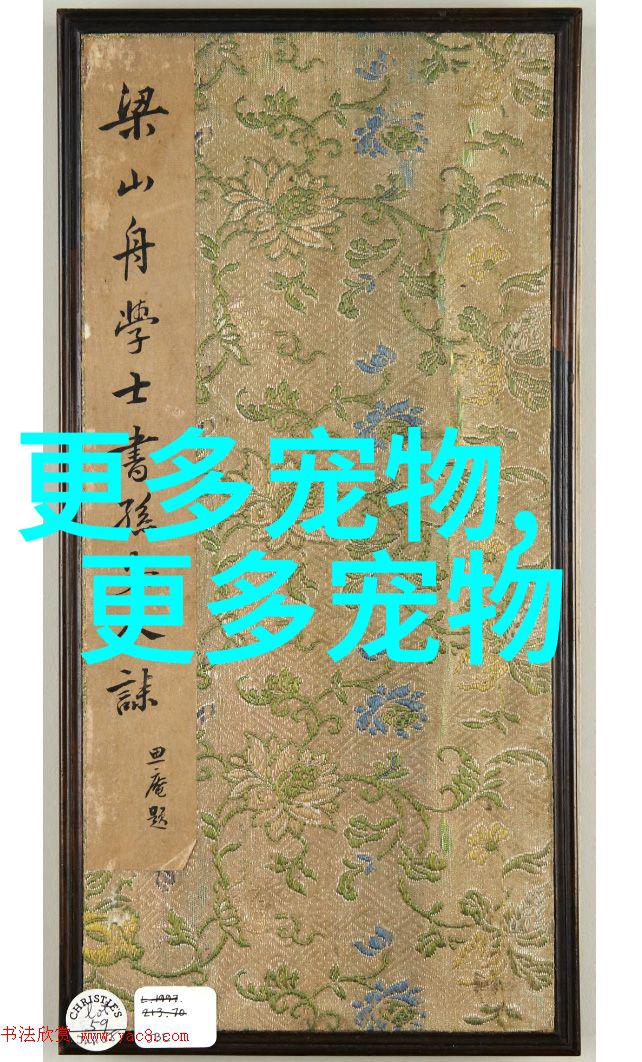 梁山舟學士書孫人誄
庵題
更多宠物,
更多宠物
CHRISTIE'S
lot
59
L.1997.
213.70
书法欣赏 www.yac8.com